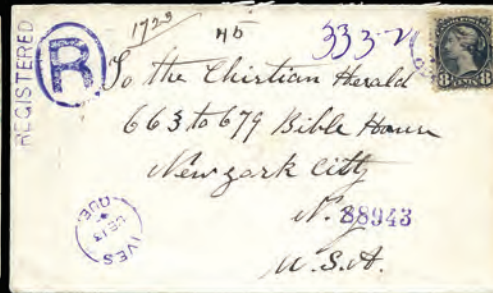 REGISTERED
R
1723
45
332
8 CENTS 8
To the Chistian Herald
663 to 679 Bible House
Newyark Citty
N. Y
88943
U.S.A.
IVES
DE 13
QUE.